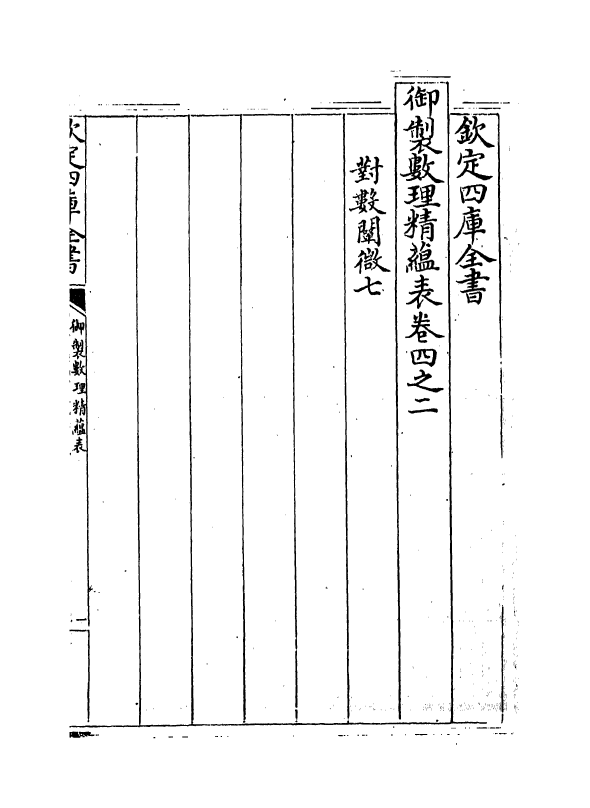 欽定四庫全書
御製數理精蘊表卷四之二
對數闡微七
欽定四庫全書
御製數理精蘊表
一